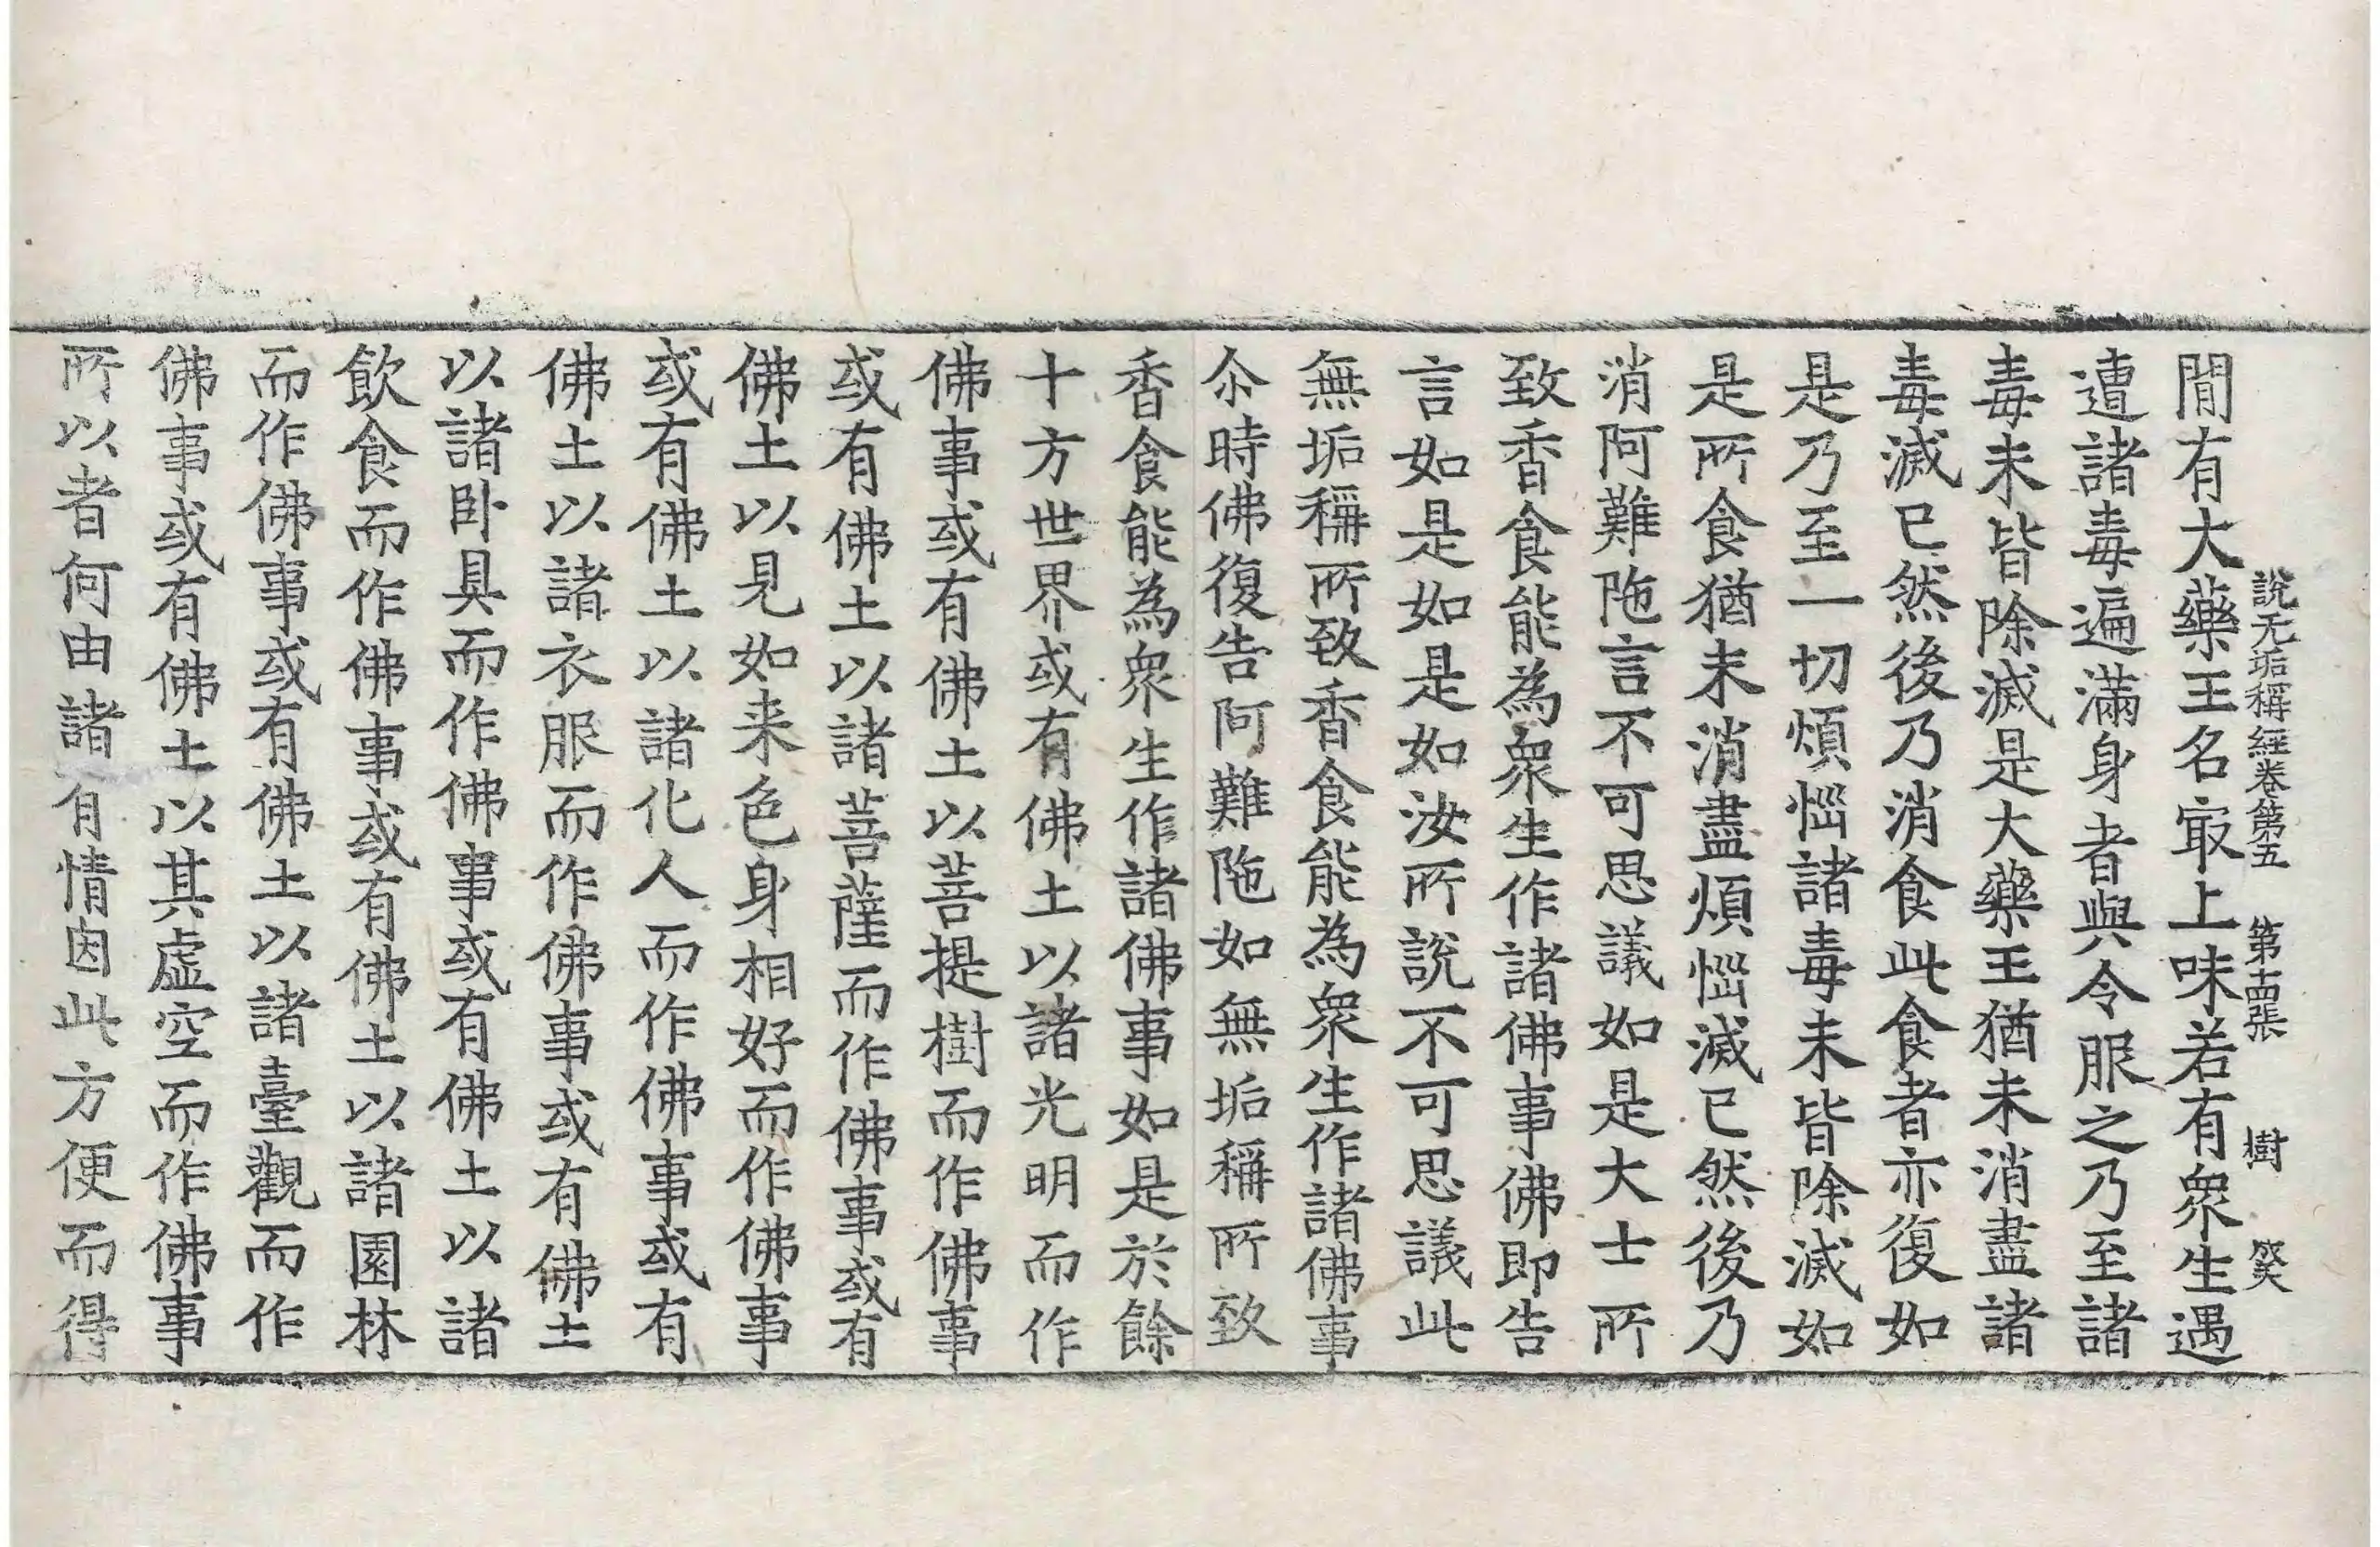 説无垢稱經卷第五　第十四張　樹　癸
間有大藥王名冣上味若有衆生遇
遭諸毒遍滿身者與令服之乃至諸
毒未皆除滅是大藥王猶未消盡諸
毒滅已然後乃消食此食者亦復如
是乃至一切煩惱諸毒未皆除滅如
是所食猶未消盡煩惱滅已然後乃
消阿難陁言不可思議如是大士所
致香食能為衆生作諸佛事佛即告
言如是如是如汝所說不可思議此
無垢稱所致香食能為衆生作諸佛事
尒時佛復告阿難陁如無垢稱所致
香食能為衆生作諸佛事如是於餘
十方世界或有佛土以諸光明而作
佛事或有佛土以菩提樹而作佛事
或有佛土以諸菩薩而作佛事或有
佛土以見如来色身相好而作佛事
或有佛土以諸化人而作佛事或有
佛土以諸衣服而作佛事或有佛土
以諸卧具而作佛事或有佛土以諸
飲食而作佛事或有佛土以諸園林
而作佛事或有佛土以諸臺觀而作
佛事或有佛土以其虛空而作佛事
所以者何由諸有情因此方便而得